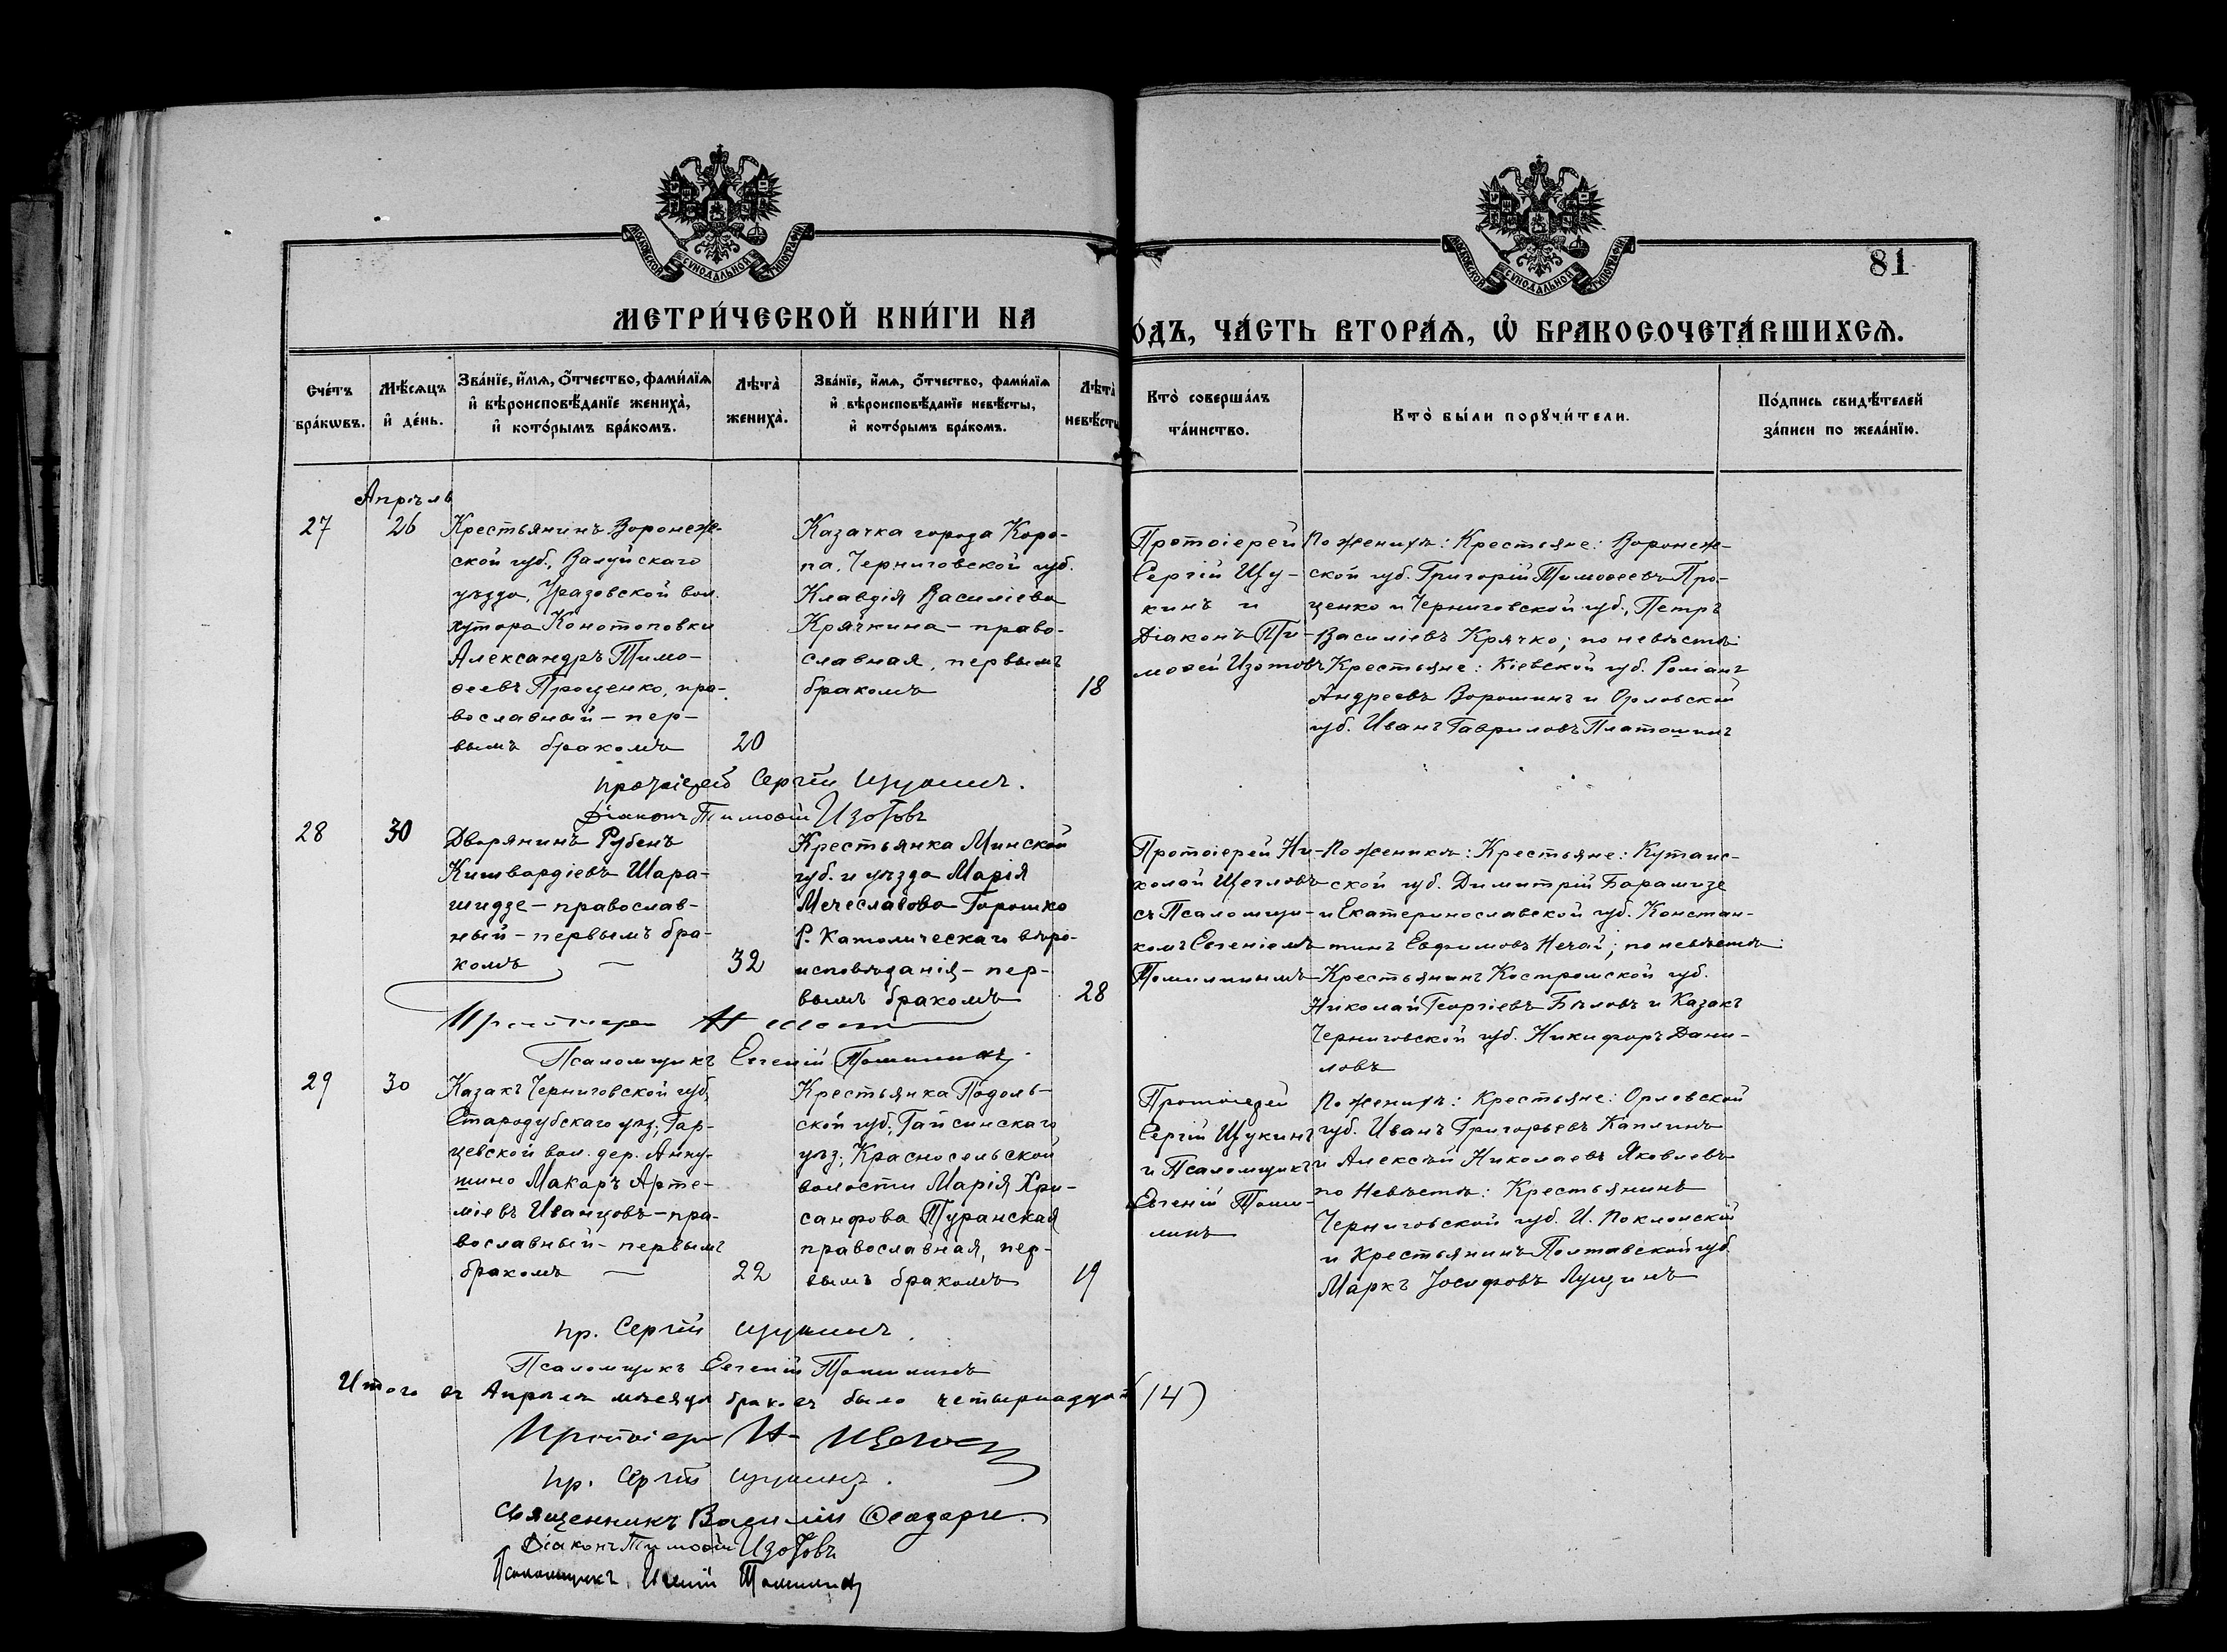 МОСКОВСКОЙ СѴНОДАЛЬНОЙ ТИПОГРАФІИ
МОСКОВСКОЙ СѴНОДАЛЬНОЙ ТИПОГРАФІИ
81
МЕТРИ́ЧЕСКОЙ КНИ́ГИ НА
О́ДЪ, ЧА́СТЬ ВТОРА́Ѧ, Ѡ҆ БРАКОСОЧЕТА́ВШИХСѦ.
Сче́тъ
бра́кѡвъ.
Мѣ́сѧцъ
и҆ де́нь.
Зва́нїе, и҆́мѧ, ѻ҆́тчество, фами́лїѧ
и҆ вѣроисповѣ́данїе жениха̀,
и҆ кото́рымъ бра́комъ.
Лѣта̀
жениха̀.
Зва́нїе, и҆́мѧ, ѻ҆́тчество, фами́лїѧ
и҆ вѣроисповѣ́данїе невѣ́сты,
и҆ кото́рымъ бра́комъ.
Лѣта̀
невѣ́сты
Кто̀ соверша́лъ
та́инство.
Кто̀ бы́ли порꙋчи́тели.
По́дпись свидѣ́телей
за́писи по жела́нїю.
Апрѣль
27
26
Крестьянинъ Воронеж-
ской губ., Валуйскаго
уѣзда, Уразовской вол.
хутора Конотоповки
Александръ Тимо-
ѳеевъ Проценко, пра-
вославный – пер-
вымъ бракомъ
20
Казачка города Коро-
па, Черниговской губ.
Клавдія Василіева
Крячкина – право-
славная, первымъ
бракомъ
18
Протоіерей
Сергій Щу-
кинъ и
Діаконъ Ти-
моѳей Изотовъ
По женихѣ: Крестьяне: Воронеж-
ской губ. Григорій Тимоѳеевъ Про-
ценко и Черниговской губ., Петръ
Василіевъ Крячко; по невѣстѣ:
Крестьяне: Кіевской губ. Романъ
Андреевъ Ворошинъ и Орловской
губ. Иванъ Гавриловъ Платошинъ
протоіерей Сергій Щукинъ.
Діаконъ Тимоѳей Изотовъ
28
30
Дворянинъ Рубенъ
Кишвардіевъ Шара-
шидзе – православ-
ный – первымъ бра-
комъ –
32
Крестьянка Минской
губ. и уѣзда Марія
Мечеславова Горошко
Р. Католическаго вѣро-
исповѣданія – пер-
вымъ бракомъ
28
Протоіерей Ни-
колай Щегловъ
съ Псаломщи-
комъ Евгеніемъ
Томилинымъ
По женихѣ: Крестьяне: Кутаис-
ской губ. Димитрій Барамизе
и Екатеринославской губ. Констан-
тинъ Евфимовъ Нечай; по невѣстѣ:
Крестьянинъ Костромской губ.
Николай Георгіевъ Бѣловъ и Казакъ
Черниговской губ. Никифоръ Дани-
ловъ
Протоіерей Н
Псаломщикъ Евгеній Томилинъ.
29
30
Казакъ Черниговской губ.,
Стародубскаго уѣз., Гар-
цевской вол. дер. Анну-
шино Макаръ Арте-
міевъ Иванцовъ – пра-
вославный – первымъ
бракомъ –
22
Крестьянка Подоль-
ской губ., Гайсинскаго
уѣз., Красносельской
волости Марія Хри-
санфова Туранская
православная, пер-
вымъ бракомъ
19
Протоіерей
Сергій Щукинъ
и Псаломщикъ
Евгеній Томи-
линъ
По женихѣ: Крестьяне: Орловской
губ. Иванъ Григорьевъ Каплинъ
и Алексѣй Николаевъ Яковлевъ
по Невѣстѣ: Крестьянинъ
Черниговской губ. И. Поклонской
и Крестьянинъ Полтавской губ.
Маркъ Іосифовъ Лущинъ
пр. Сергій Щукинъ.
Псаломщикъ Евгеній Томилинъ
Итого въ Апрѣлѣ мѣсяцѣ браковъ было четырнадцать (14)
Протоіерей Н Щегловъ
пр. Сергій Щукинъ.
Священникъ Василій
Діаконъ Тимоѳей Изотовъ
Псаломщикъ Евгеній Томилинъ